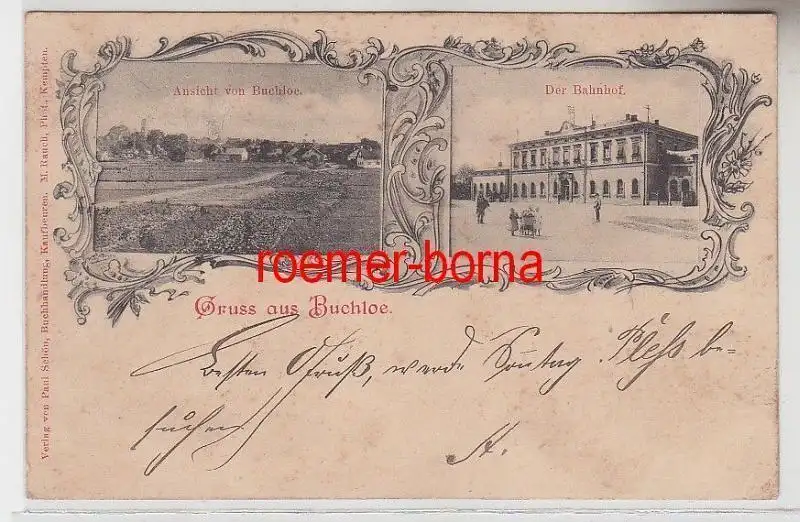 Verlag von Paul Schön, Buchhandlung, Kaufbeuren. M. Rauch, Phot., Kempten.
Ansicht von Buchloe.
Der Bahnhof.
roemer-borna
Gruss aus Buchloe.
Besten Gruß, werde Sonntag Pleß be-
suchen
A.